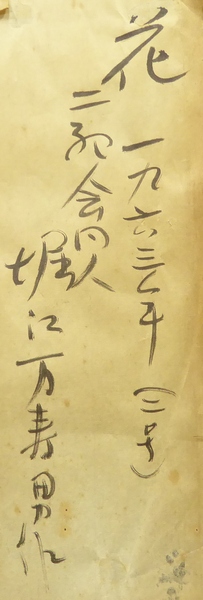 花
一九六三年(三号)
二紀会同人
堀江万寿男作